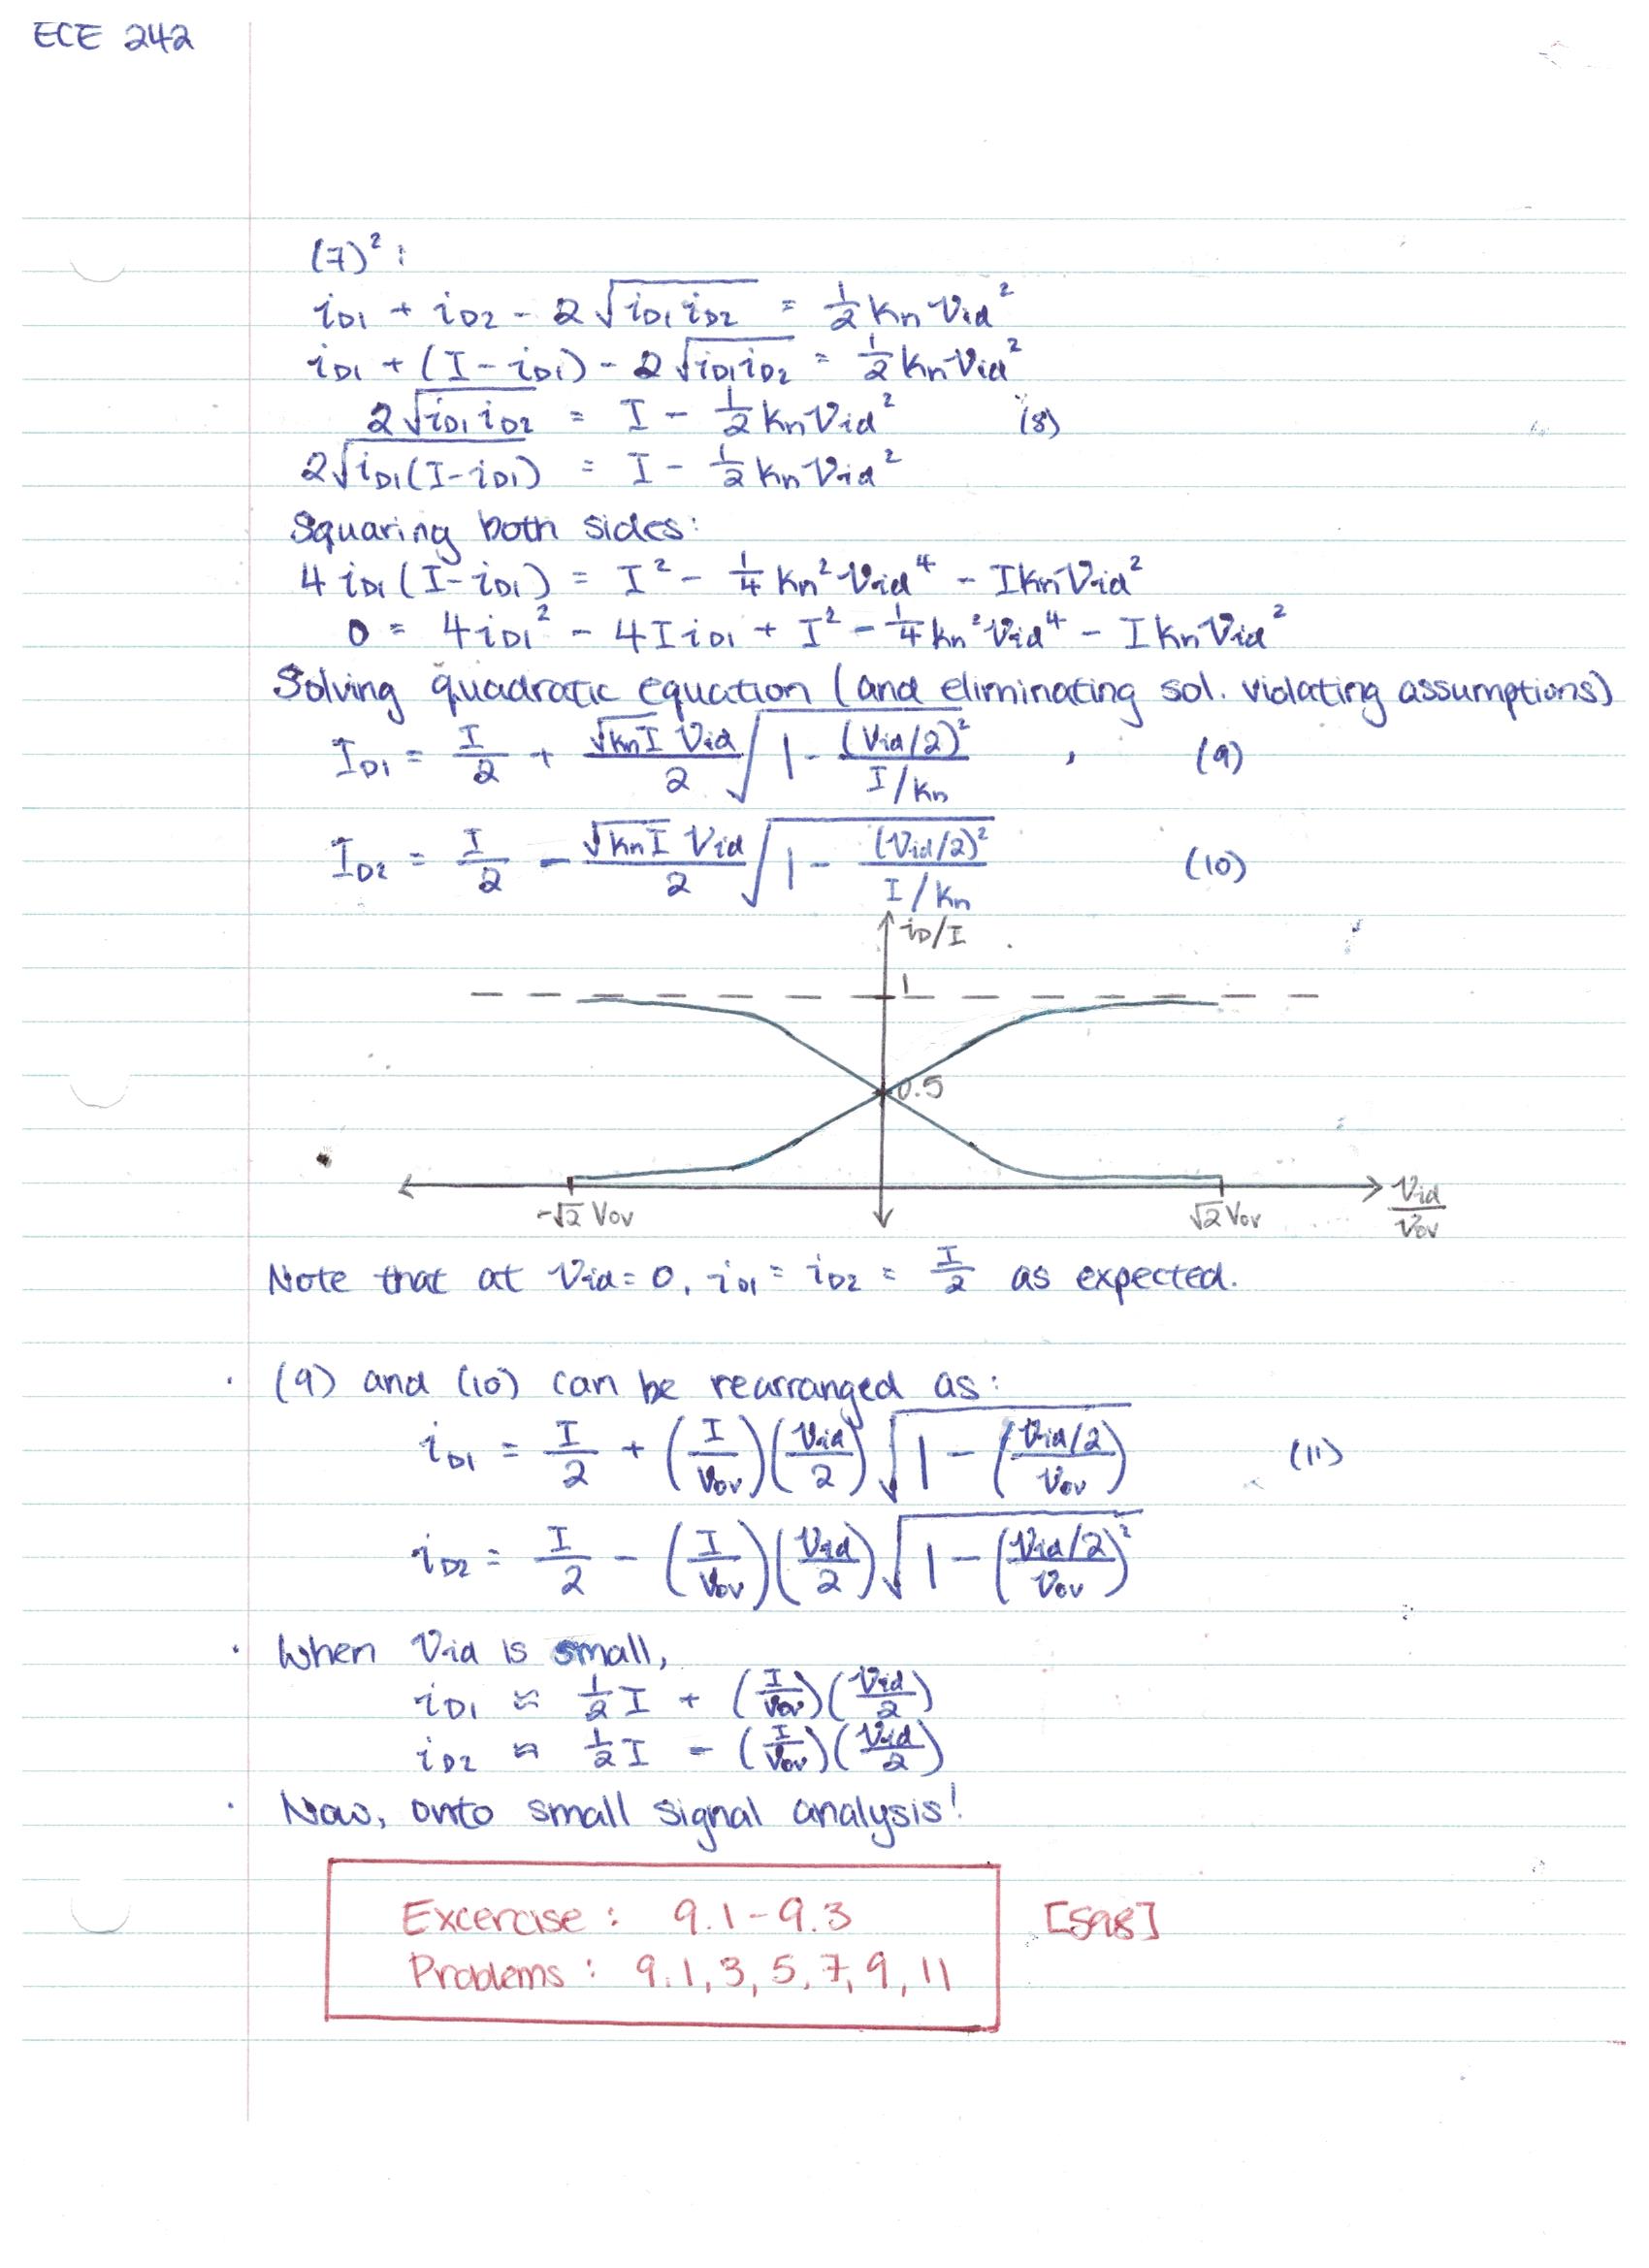 ECE 242
(7)² :
iD1 + iD2 - 2√(iD1 iD2) = ½ kn Vid²
iD1 + (I - iD1) - 2√(iD1 iD2) = ½ kn Vid²
2√(iD1 iD2) = I - ½ kn Vid² (8)
2√(iD1(I-iD1)) = I - ½ kn Vid²
Squaring both sides:
4 iD1 (I-iD1) = I² - ¼ kn² Vid⁴ - I kn Vid²
0 = 4 iD1² - 4 I iD1 + I² - ¼ kn² Vid⁴ - I kn Vid²
Solving quadratic equation (and eliminating sol. violating assumptions)
ID1 = I/2 + √(kn I) Vid / 2 √(1 - (Vid/2)² / (I/kn)) , (9)
ID2 = I/2 - √(kn I) Vid / 2 √(1 - (Vid/2)² / (I/kn)) (10)
iD/I
1
0.5
-√2 Vov
√2 Vov
Vid/Vov
Note that at Vid = 0, iD1 = iD2 = I/2 as expected.
· (9) and (10) can be rearranged as:
iD1 = I/2 + (I/Vov)(Vid/2) √(1 - ((Vid/2)/Vov)) (11)
iD2 = I/2 - (I/Vov)(Vid/2) √(1 - ((Vid/2)/Vov)²)
· When Vid is small,
iD1 ≈ ½ I + (I/Vov)(Vid/2)
iD2 ≈ ½ I - (I/Vov)(Vid/2)
· Now, onto small signal analysis!
Excercise : 9.1 - 9.3 [598]
Problems : 9.1, 3, 5, 7, 9, 11